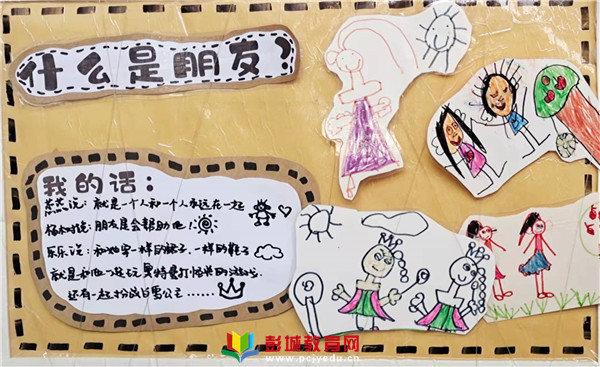 什么是朋友？
我的话：
燕燕说：就是一个人和一个人永远在一起
说：朋友是会帮助他！
乐乐说：和她穿一样的裙子，一样的鞋子
就是和他一起玩奥特曼打怪兽的游戏
还有一起扮成白雪公主……
彭城教育网
www.pcjyedu.cn